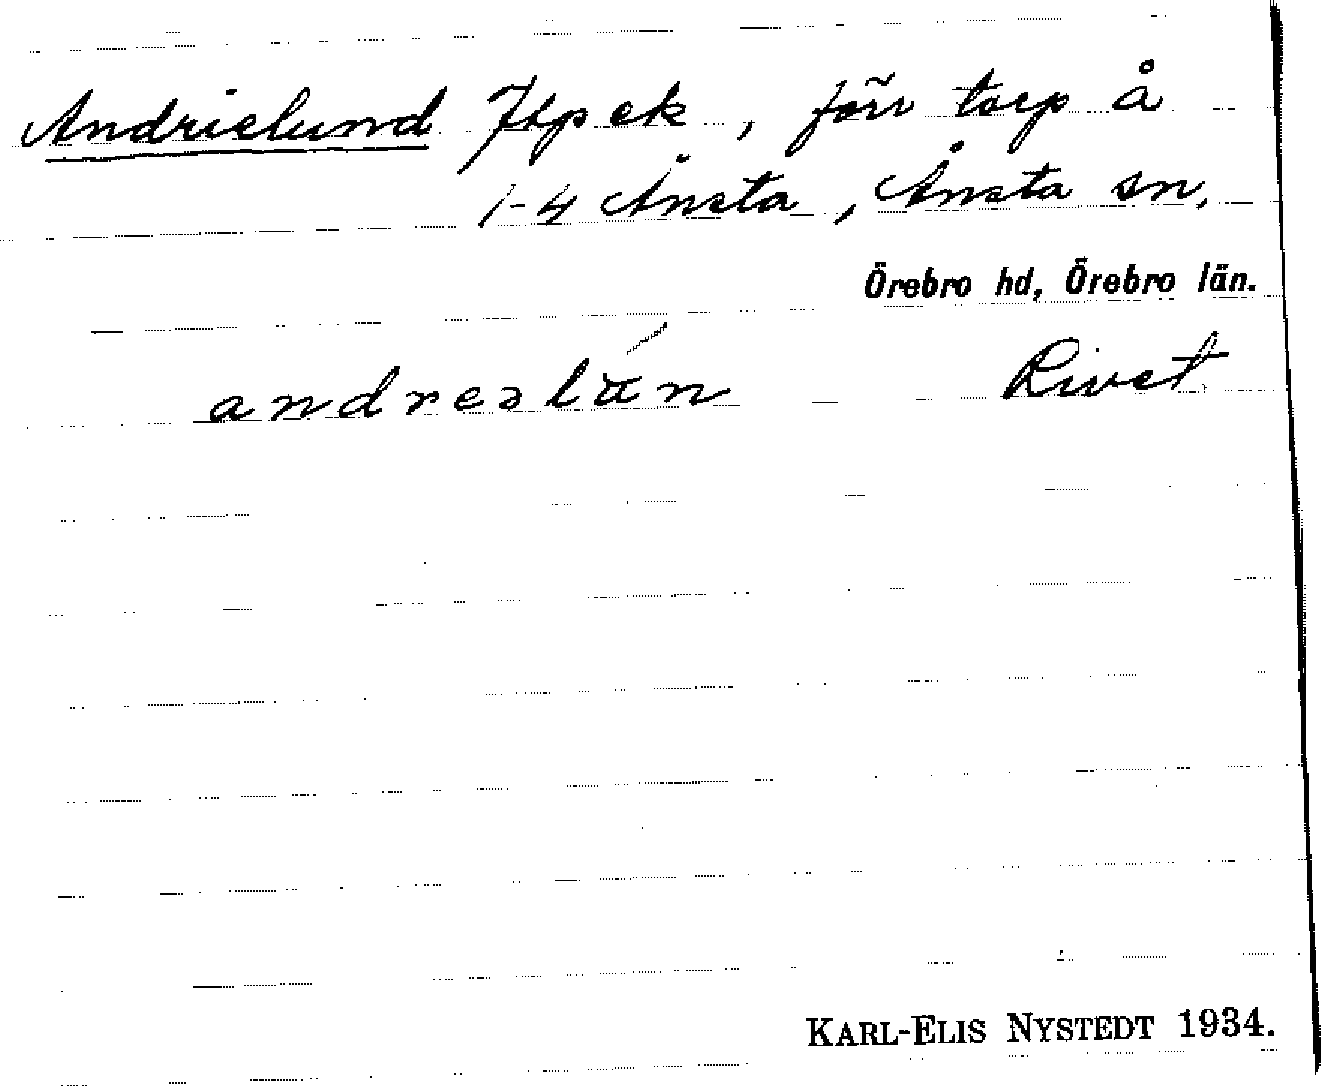 Andrielund Jtpek, förr torp å
1-4 Ånsta, Ånsta sn,
Örebro hd, Örebro län.
andreslún Rivet
KARL-ELIS NYSTEDT 1934.